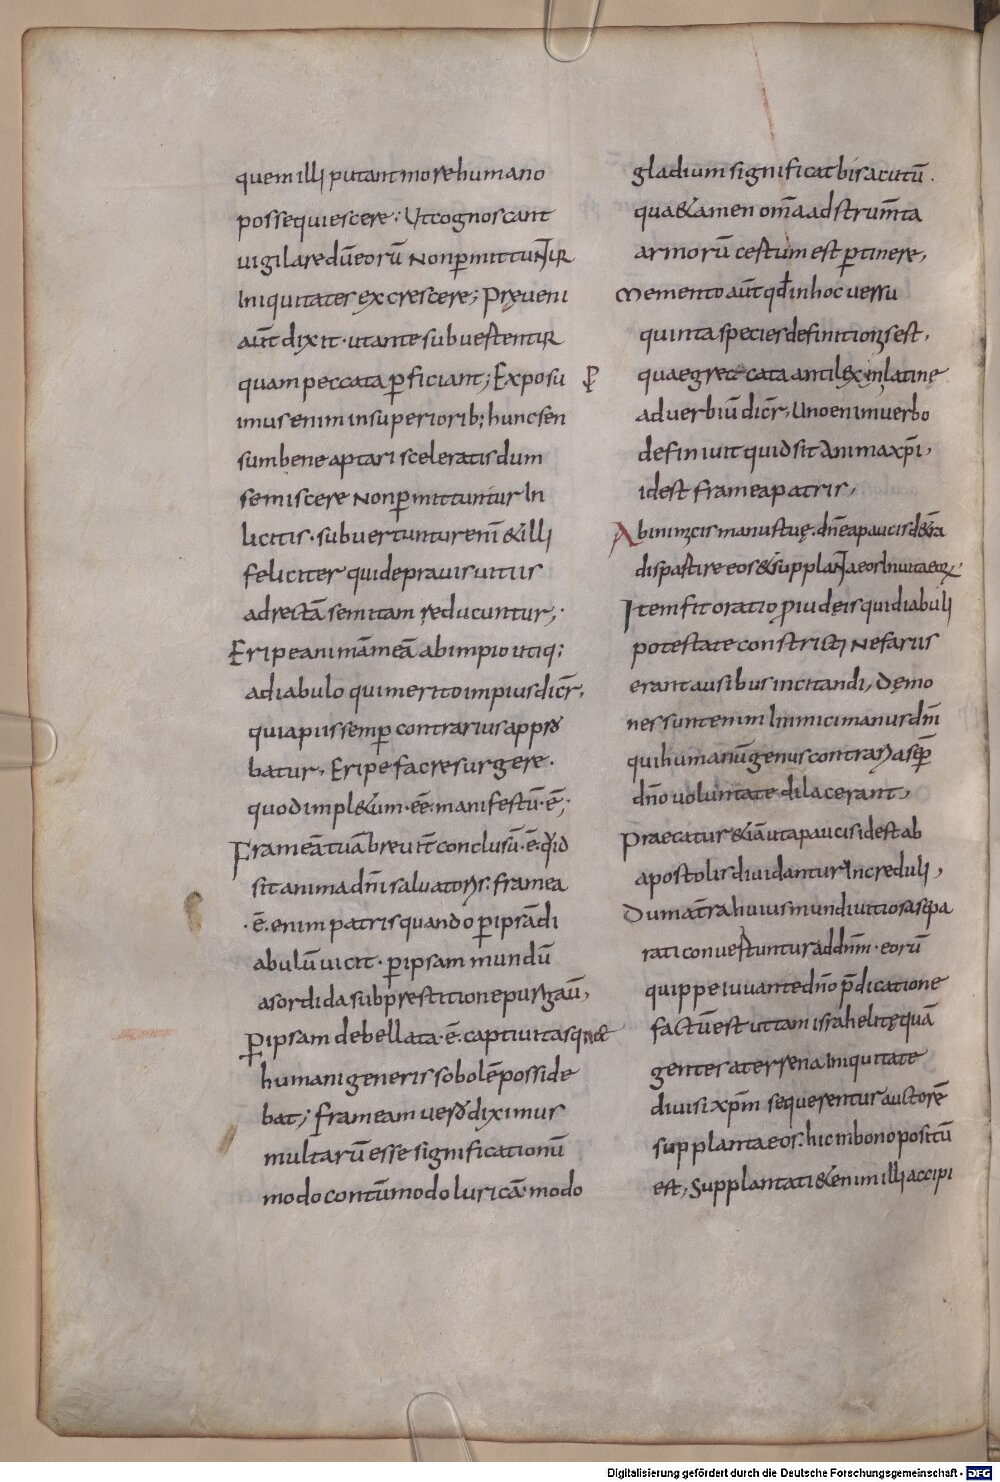 quem illi putant more humano
posse quiescere; Ut cognoscant
uigilare dn̄m eorū Non ꝑmittuntur
Iniquitates excrescere; Pręueni
aūt dixit · ut ante subuertentur
quam peccata ꝑficiant; Exposu
imus enim in superiorib; hunc sen
sum bene aptari sceleratis dum
se miscere Non ꝑmittuntur In
licitis · subuertuntur enī & illi
feliciter qui de prauis uitiis
ad rectā semitam reducuntur;
Eripe animā meā ab impio utiq;
a diabulo qui merito impius dicr̄,
quia piis semꝑ contrarius appro
batur, Eripe fac resurgere ·
quod impl&um · eē · manifestū · ē;
Frameā tuā breuit̄ conclusū · ē · quid
sit anima dn̄i saluatoris · framea
· ē · enim patris quando ꝑ ipsā di
abulū uicit · ꝑ ipsam mundū
a sordida subprestitione purgau̅,
ꝑ ipsam debellata · ē · captiuitas quae
humani generis sobolē posside
bat; frameam uero diximus
multarū esse significationū
modo contū modo luricā · modo
ꝓ
gladium significat bis acutū ·
qua& tamen om̄a ad strum̄ta
armorū certum est ꝑtinere,
Memento aūt qd̄ in hoc uersu
quinta species definitionis est,
quae grece cata antilexin latinę
ad uerbiū dicr̄, Uno enim uerbo
definiuit quid sit Anima xp̄i,
id est framea patris,
Ab inimicis manus tuę · dn̄e a paucis de t̄ra
dispartire eos & supplanta eos In uita eoꝝ
Item fit oratio ꝓ iudeis qui diabuli
potestate constricti Nefariis
erant ausibus incitandi, Dęmo
nes sunt enim Inimici manus dn̄i
qui humanū genus contraria semꝑ
dn̄o uoluntate dilacerant,
Praecatur & iā ut a paucis id est ab
apostolis diuidantur Increduli,
Dum a t̄ra huius mundi uitiosa sepa
rati conuertuntur ad dnm̄ · eorū
quippe iuuante dn̄o p̄dicatione
factū est ut tam israhelitę quā
gentes a terrena Iniquitate
diuisi xpm̄ sequerentur auctorē
supplanta eos · hic in bono positū
est, Supplantati & enim illi accipi
Digitalisierung gefördert durch die Deutsche Forschungsgemeinschaft - DFG